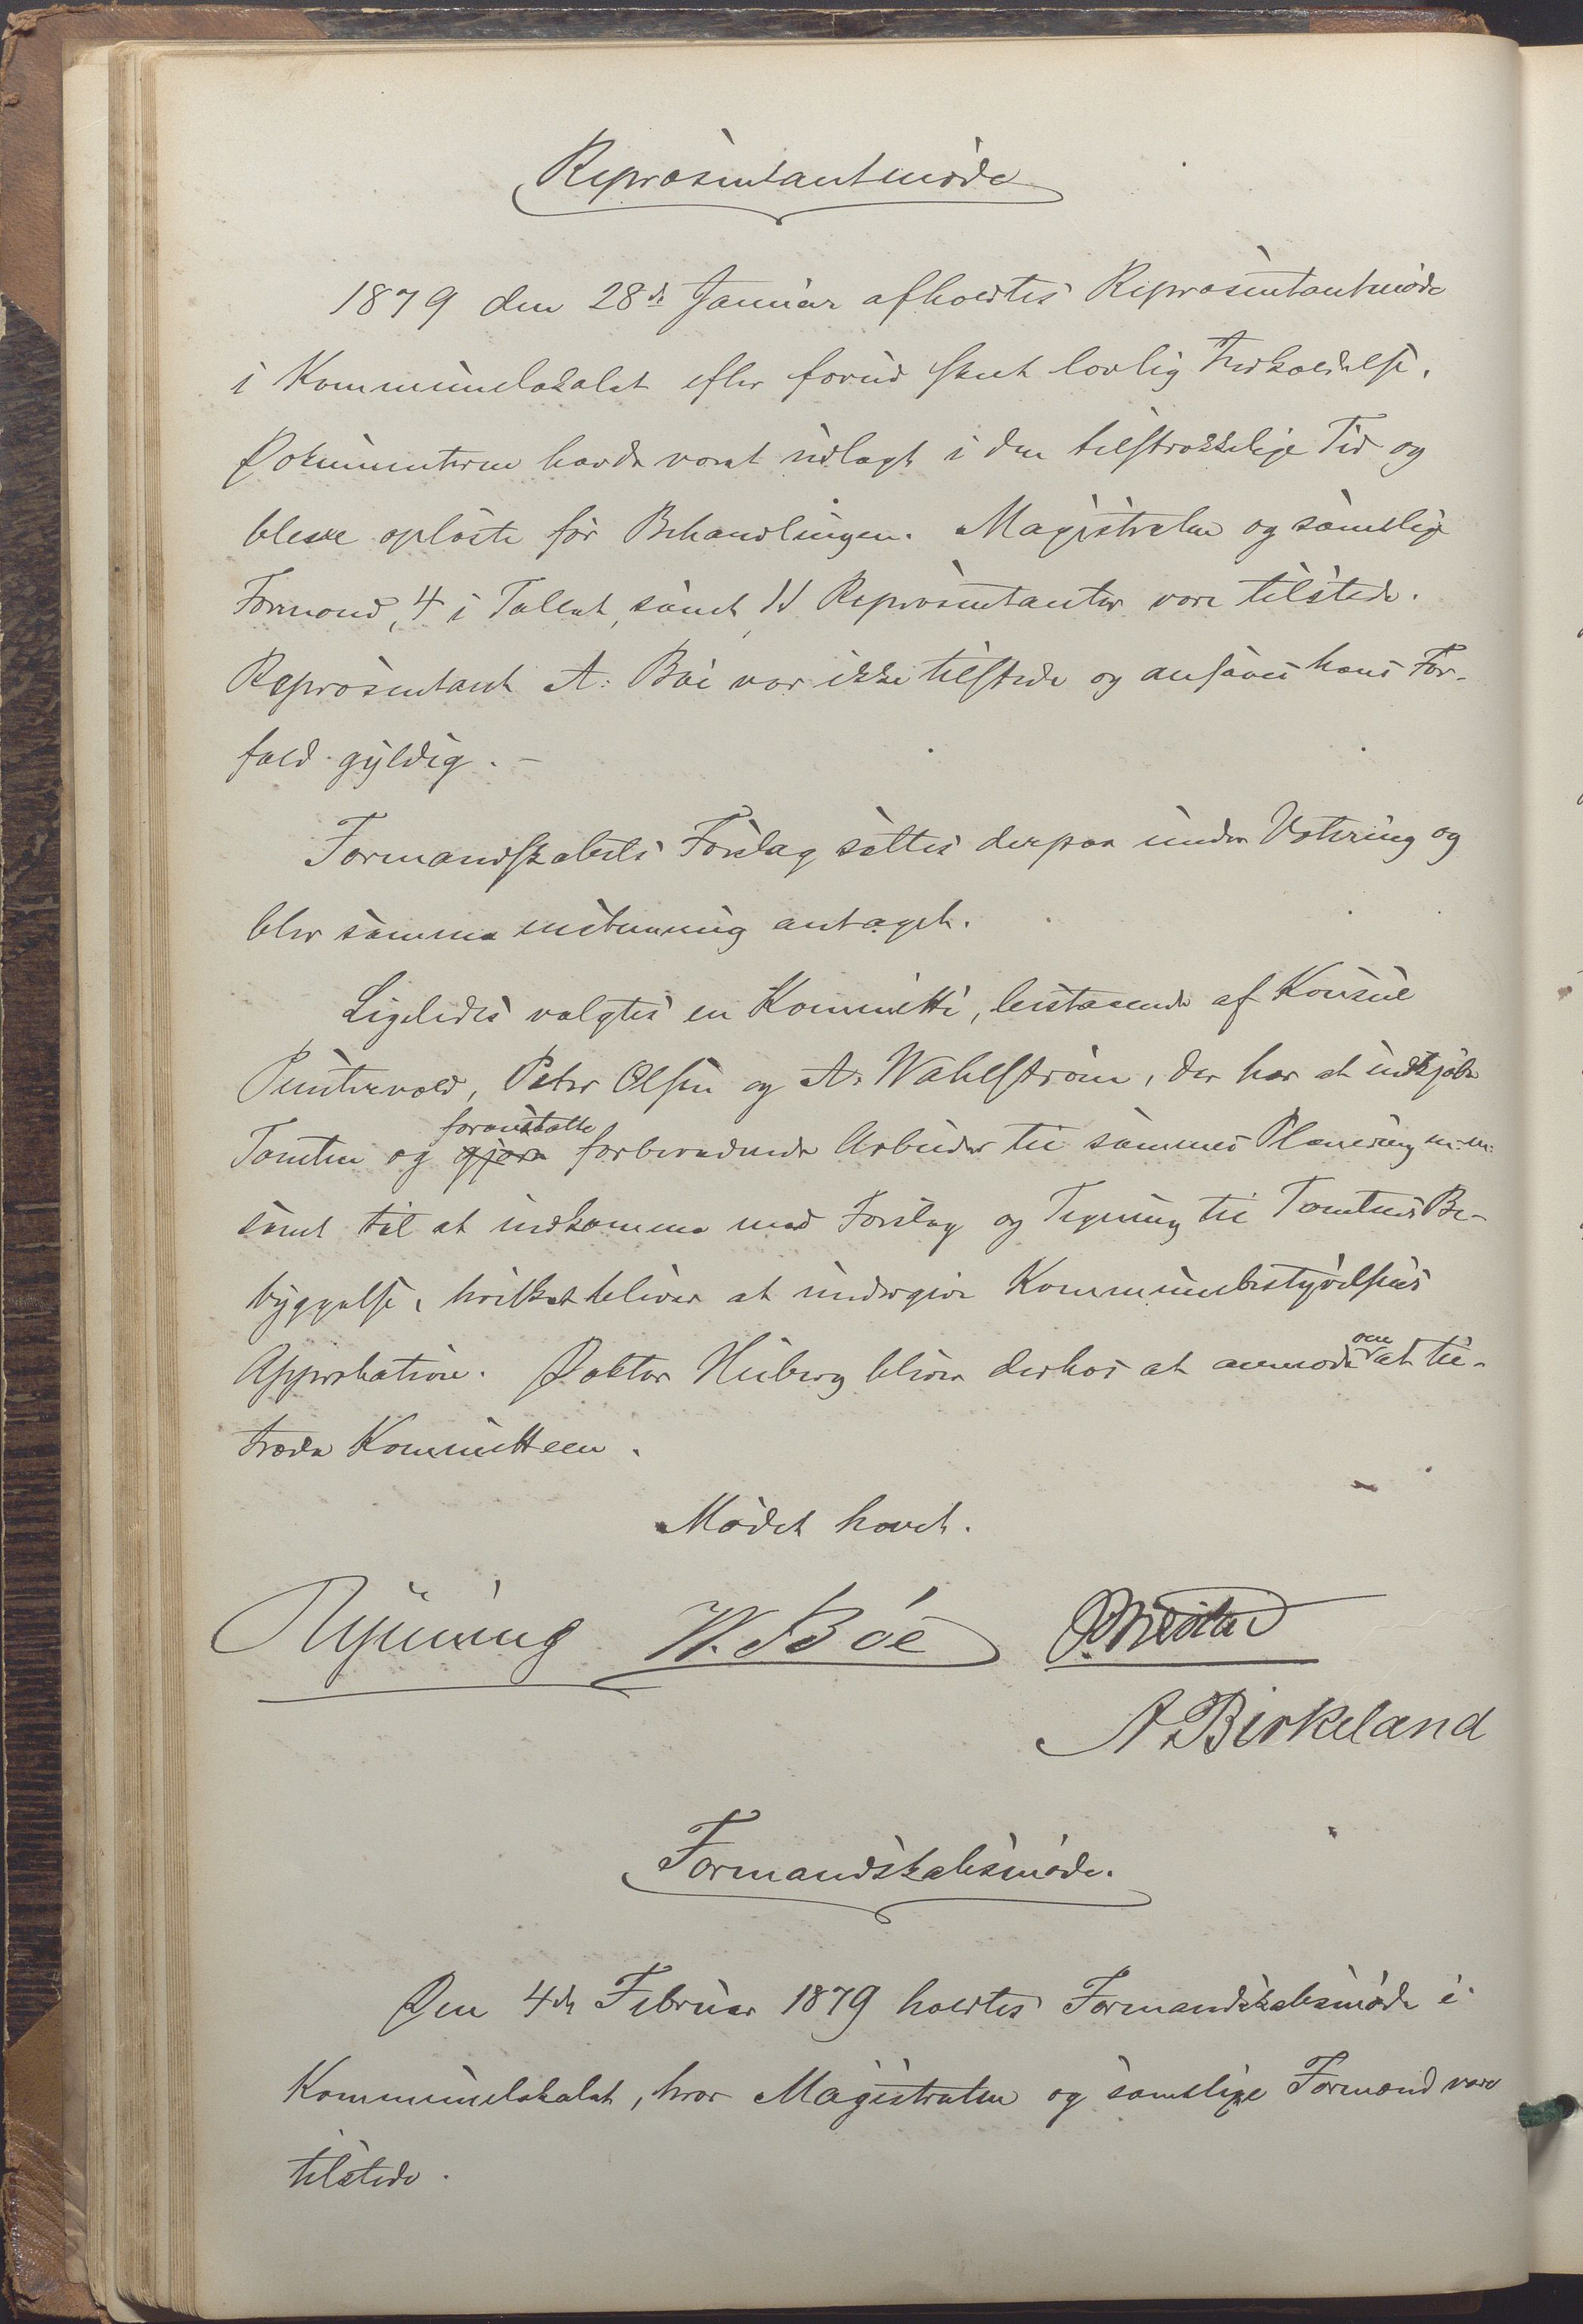 Repræsentantmøde
1879 den 28de Januar afholdtes Repræsentantmøde
i Kommunelokalet efter forud skeet lovlig Indkaldelse.
Dokumenterne havde været udlagt i den tilstrækkelige Tid og
bleve oplæste før Behandlingen. Magistraten og samtlige
Formænd, 4 i Tallet, samt 11 Repræsentanter vare tilstede.
Repræsentant A. Bøe var ikke tilstede og ansaaes hans For-
fald gyldig. –
Formandskabets Forslag sattes derpaa under Votering og
blev samme enstemmig antaget.
Ligeledes valgtes en Kommitte, bestaaende af Konsul
Puntervold, Peter Olsen og A. Wahlstrøm, der har at indkjøbe
Tomten og gjøre foranstalte forberedende Arbeider til sammes Planering m.m.
samt til at indkomme med Forslag og Tegning til Tomtens Be-
byggelse, hvilket bliver at undergive Kommunebestyrelsens
Approbation. Doktor Heiberg bliver derhos at anmode om at til-
træde Kommitteen.
Mødet hævet.
Rynning W. Bøe
A. Birkeland
Formandskabsmøde.
Den 4de Februar 1879 holdtes Formandskabsmøde i
Kommunelokalet, hvor Magistraten og samtlige Formænd vare
tilstede.